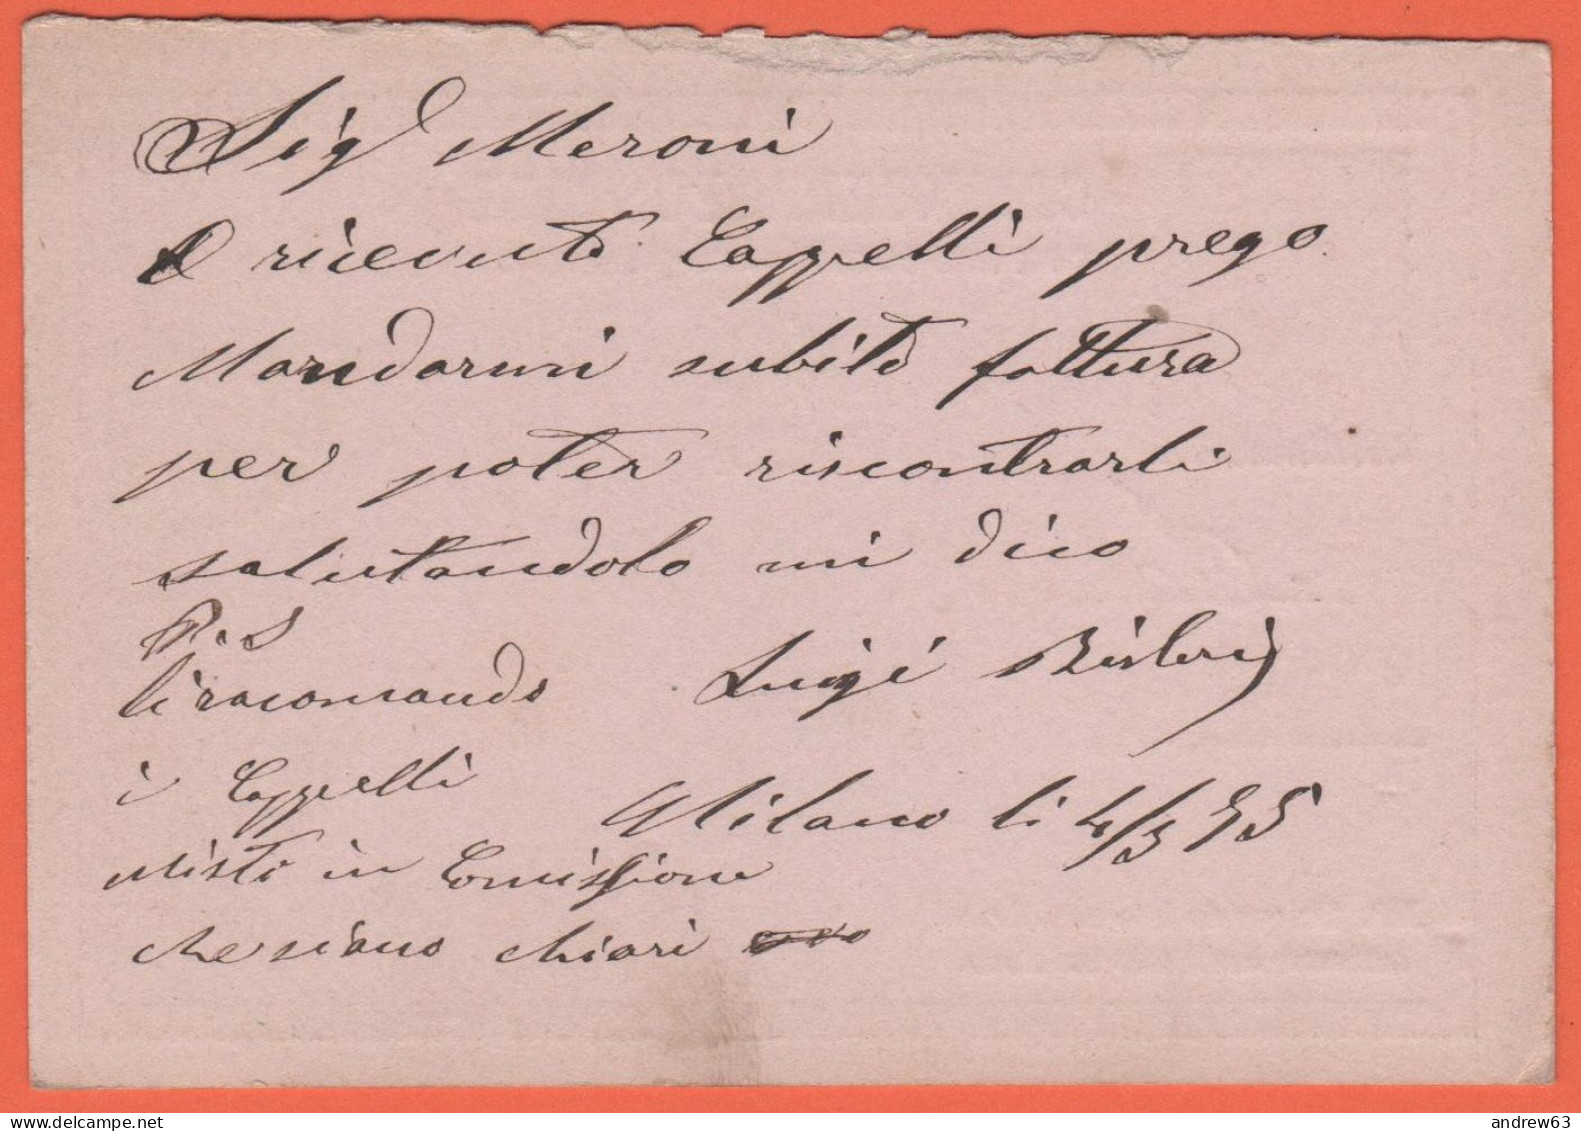 Sigr Meroni
O ricevuto Cappelli prego
Mandarmi subito fattura
per poter riscontrarli
salutandolo mi dico
P.S
li racomando
Luigi
i Cappelli
Milano li 4/3 95
Misti in Comissione
che siano chiari
andrew63